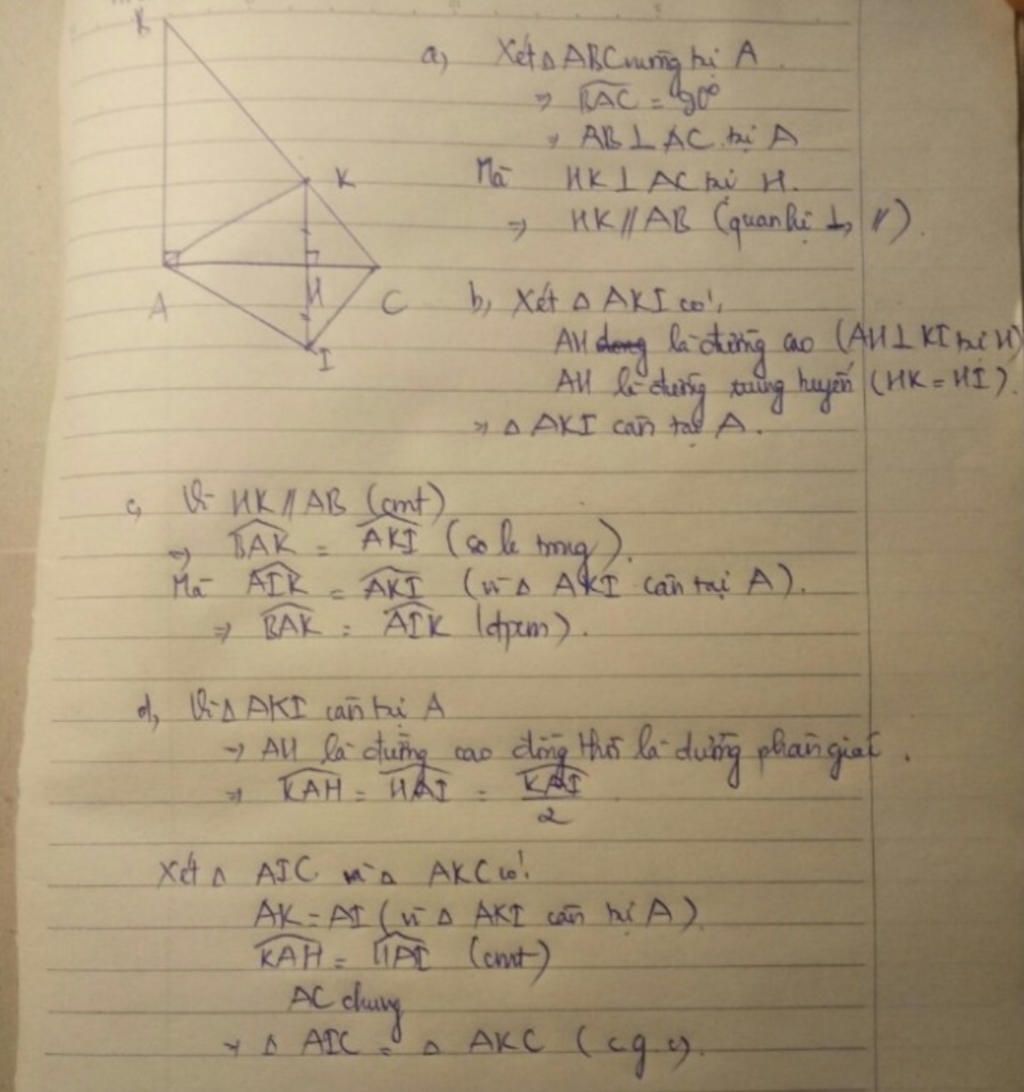 B
K
A
H
C
I
a, Xét Δ ABC vuông tại A
⇒ \widehat{BAC} = 90°
⇒ AB ⊥ AC tại A
Mà HK ⊥ AC tại H.
⇒ HK // AB (quan hệ ⊥, //).
b, Xét Δ AKI có:
AH là đường cao (AH ⊥ KI tại H)
AH là đường trung tuyến (HK = HI).
⇒ Δ AKI cân tại A.
c, Vì HK // AB (cmt)
⇒ \widehat{BAK} = \widehat{AKI} (so le trong).
Mà \widehat{AIK} = \widehat{AKI} (vì Δ AKI cân tại A).
⇒ \widehat{BAK} = \widehat{AIK} (đpcm).
d, Vì Δ AKI cân tại A
⇒ AH là đường cao đồng thời là đường phân giác.
⇒ \widehat{KAH} = \widehat{HAI} = \frac{\widehat{KAI}}{2}
Xét Δ AIC và Δ AKC có:
AK = AI (vì Δ AKI cân tại A)
\widehat{KAH} = \widehat{HAI} (cmt)
AC chung
⇒ Δ AIC = Δ AKC (c.g.c).